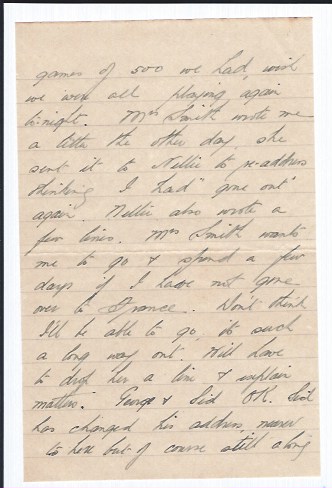 games of 500 we had, wish
we were all playing again
to-night. Mrs Smith wrote me
a letter the other day, she
sent it to Nellie to re-address
thinking I had "gone out"
again. Nellie also wrote a
few lines. Mrs Smith wants
me to go & spend a few
days if I have not gone
over to France. Don't think
I'll be able to go, it such
a long way out. Will have
to drop her a line & explain
matters. George & Sid OK. Sid
has changed his address, nearer
to here but of course still a long